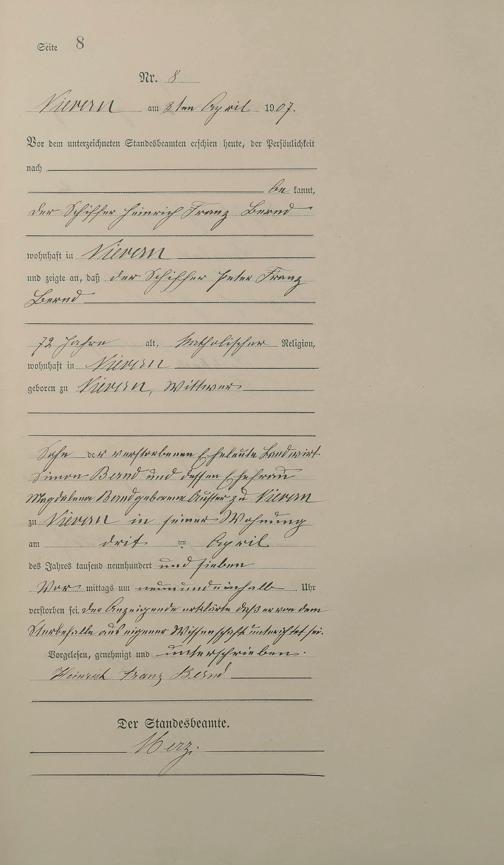 Seite 8
Nr. 8
Nievern am 3ten April 1907.
Vor dem unterzeichneten Standesbeamten erschien heute, der Persönlichkeit
nach
be kannt,
der Schiffer Heinrich Franz Bernd
wohnhaft in Nievern
und zeigte an, daß der Schiffer Peter Franz
Bernd
72 Jahre alt, katholischer Religion,
wohnhaft in Nievern
geboren zu Nievern, Wittwer
Sohn der verstorbenen Eheleute Landwirt
Simon Bernd und dessen Ehefrau
Magdalena Bernd geborene zu Nievern
zu Nievern in seiner Wohnung
am drit ten April
des Jahres tausend neunhundert und sieben
Vor mittags um neunundeinhalb Uhr
verstorben sei. Der Anzeigende erklärte daß er von dem
Sterbefalle aus eigener Wissenschaft unterrichtet sei.
Vorgelesen, genehmigt und unterschrieben.
Franz Bernd
Der Standesbeamte.
Merz.